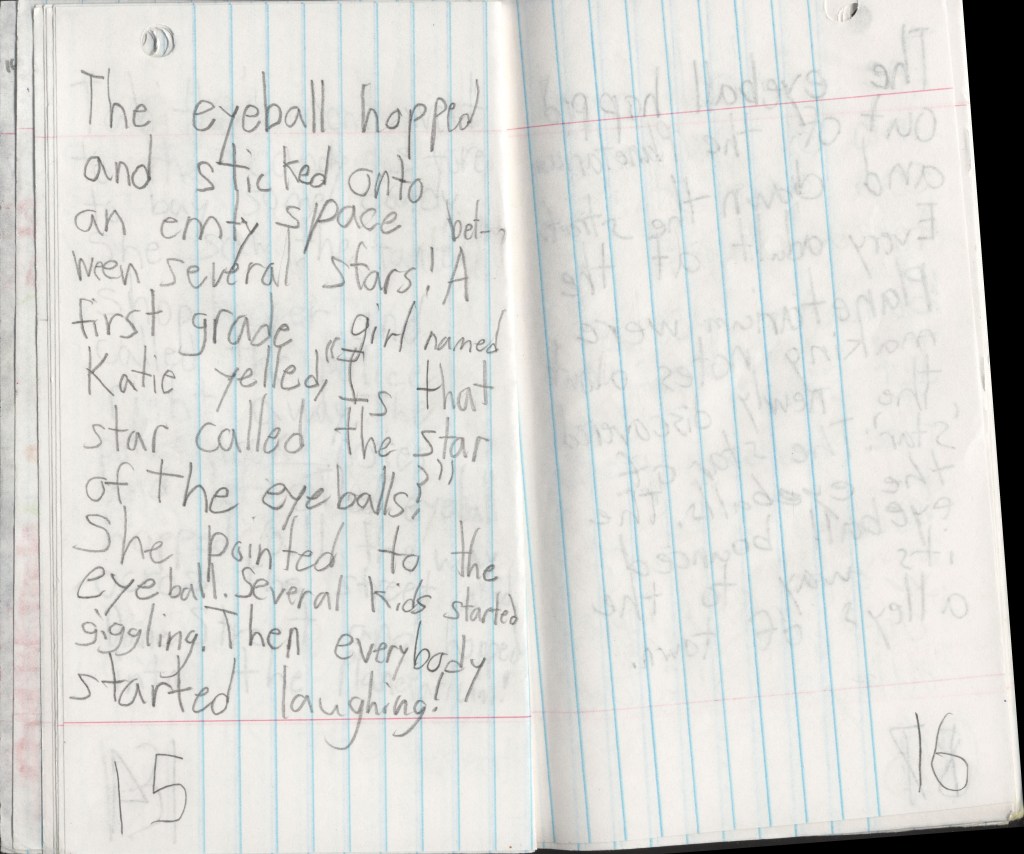 The eyeball hopped
and sticked onto
an emty space bet-
ween several stars! A
first grade girl named
Katie yelled, "Is that
star called the star
of the eyeballs?"
She pointed to the
eyeball. Several kids started
giggling. Then everybody
started laughing!
15
16